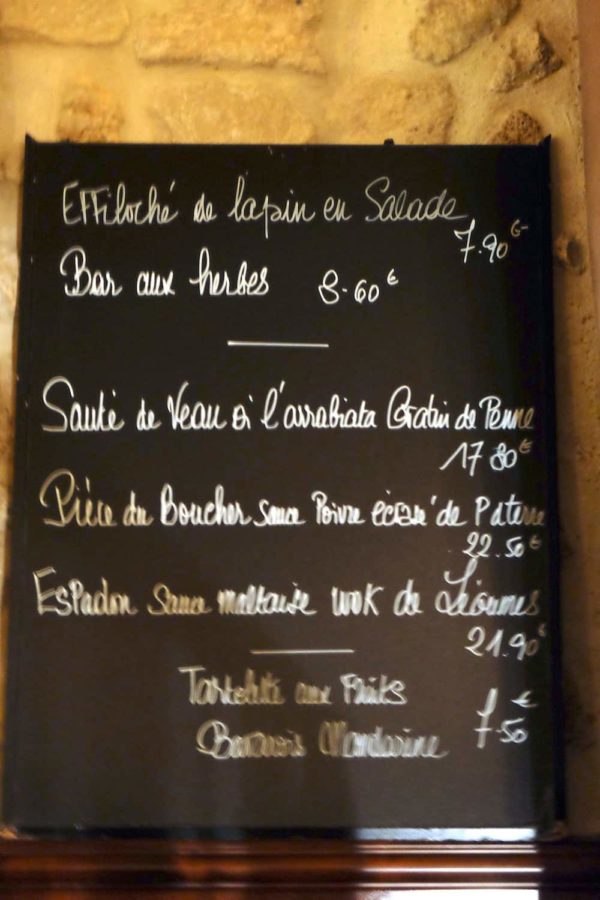 Effiloché de lapin en Salade
7.90€
Bar aux herbes 8.60€
Sauté de Veau à l'arrabiata Gratin de Penne
17 80€
Pièce du Boucher sauce Poivre écrasé de P de terre
22.50€
Espadon Sauce maltaise wok de Légumes
21.90€
Tartelette aux Fruits
7.50€
Bavarois Mandarine